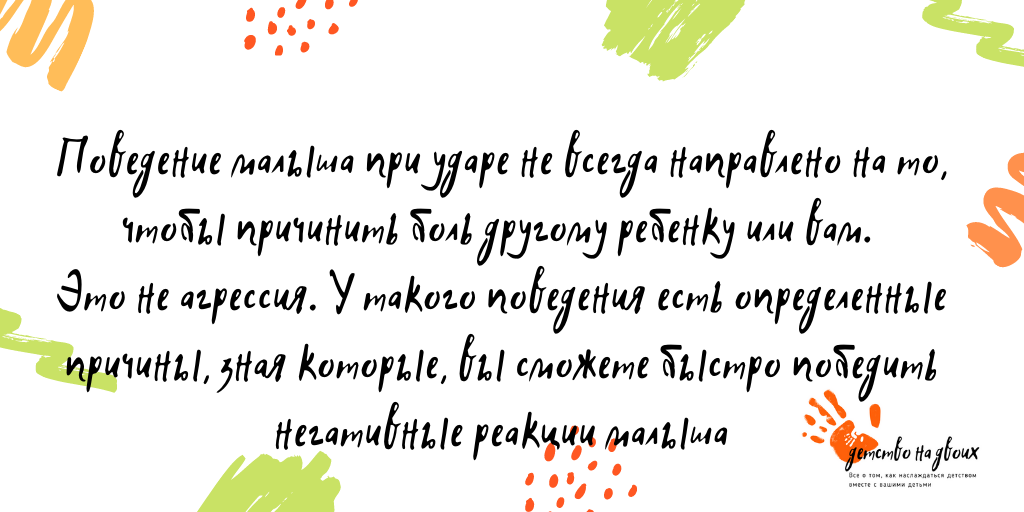 Поведение малыша при ударе не всегда направлено на то,
чтобы причинить боль другому ребенку или вам.
Это не агрессия. У такого поведения есть определенные
причины, зная которые, вы сможете быстро победить
негативные реакции малыша
детство на двоих
Все о том, как наслаждаться детством
вместе с вашими детьми